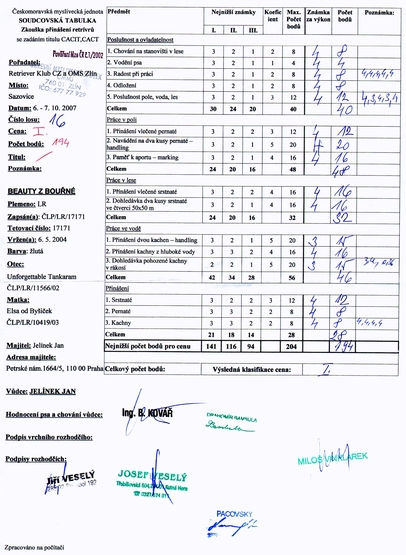 Českomoravská myslivecká jednota
SOUDCOVSKÁ TABULKA
Zkouška přinášení retrívrů
se zadáním titulu CACIT,CACT
Pořadatel:
Retriever Klub CZ a OMS Zlín
Místo:
Sazovice
Datum: 6. - 7. 10. 2007
Číslo losu: 16
Cena: I.
Počet bodů: 194
Titul:
Poznámka:
BEAUTY Z BOUŘNÉ
Plemeno: LR
Zapsán(a): ČLP/LR/17171
Tetovací číslo: 17171
Vržen(a): 6. 5. 2004
Barva: žlutá
Otec:
Unforgettable Tankaram
ČLP/LR/11566/02
Matka:
Elsa od Byšiček
ČLP/LR/10419/03
Majitel: Jelínek Jan
Adresa majitele:
Petrské nám.1664/5, 110 00 Praha
Předmět Nejnižší známky Koeficient Max. Počet bodů Známka za výkon Počet bodů Poznámka:
I. II. III.
Poslušnost a ovladatelnost
1. Chování na stanovišti v lese 3 2 1 2 8 4 8
2. Vodění psa 3 2 1 1 4 4 4
3. Radost při práci 3 2 1 2 8 4 8 4,4,4,4,4
4. Odložení 3 2 1 2 8 4 8
5. Poslušnost pole, voda, les 3 2 1 3 12 4 12 4,3,4,3,4
Celkem 30 24 20 40 40
Práce v poli
1. Přinášení vlečené pernaté 3 2 1 3 12 4 12
2. Navádění na dva kusy pernaté – handling 2 2 1 5 20 4 20
3. Paměť k aportu – marking 3 2 1 4 16 4 16
Celkem 24 20 16 48 48
Práce v lese
1. Přinášení vlečené srstnaté 3 2 2 4 16 4 16
2. Dohledávka srstnaté ve čtverci 50x50 m 3 3 2 4 16 4 16
Celkem 24 20 16 32 32
Práce ve vodě
1. Přinášení dvou kachen – handling 3 2 2 5 20 3 15
2. Přinášení kachny z hluboké vody 3 3 2 4 16 4 16
3. Dohledávka pohozené kachny v rákosí 3 2 2 5 20 3 15
Celkem 42 34 28 56 46
Přinášení
1. Srstnaté 3 2 2 3 12 4 12
2. Pernaté 3 3 2 2 8 4 8
3. Kachny 3 3 2 2 8 4 8 4,4,4,4
Celkem 21 18 14 28 28
Nejnižší počet bodů pro cenu 141 116 94 204 194
Celkový počet bodů: Výsledná klasifikace cena: I.
Vůdce: JELÍNEK JAN
Hodnocení psa a chování vůdce:
Ing. B. KOVÁŘ
Podpis vrchního rozhodčího:
Podpisy rozhodčích:
Jiří VESELÝ
JOSEF VESELÝ
PACOVSKÝ
Zpracováno na počítači